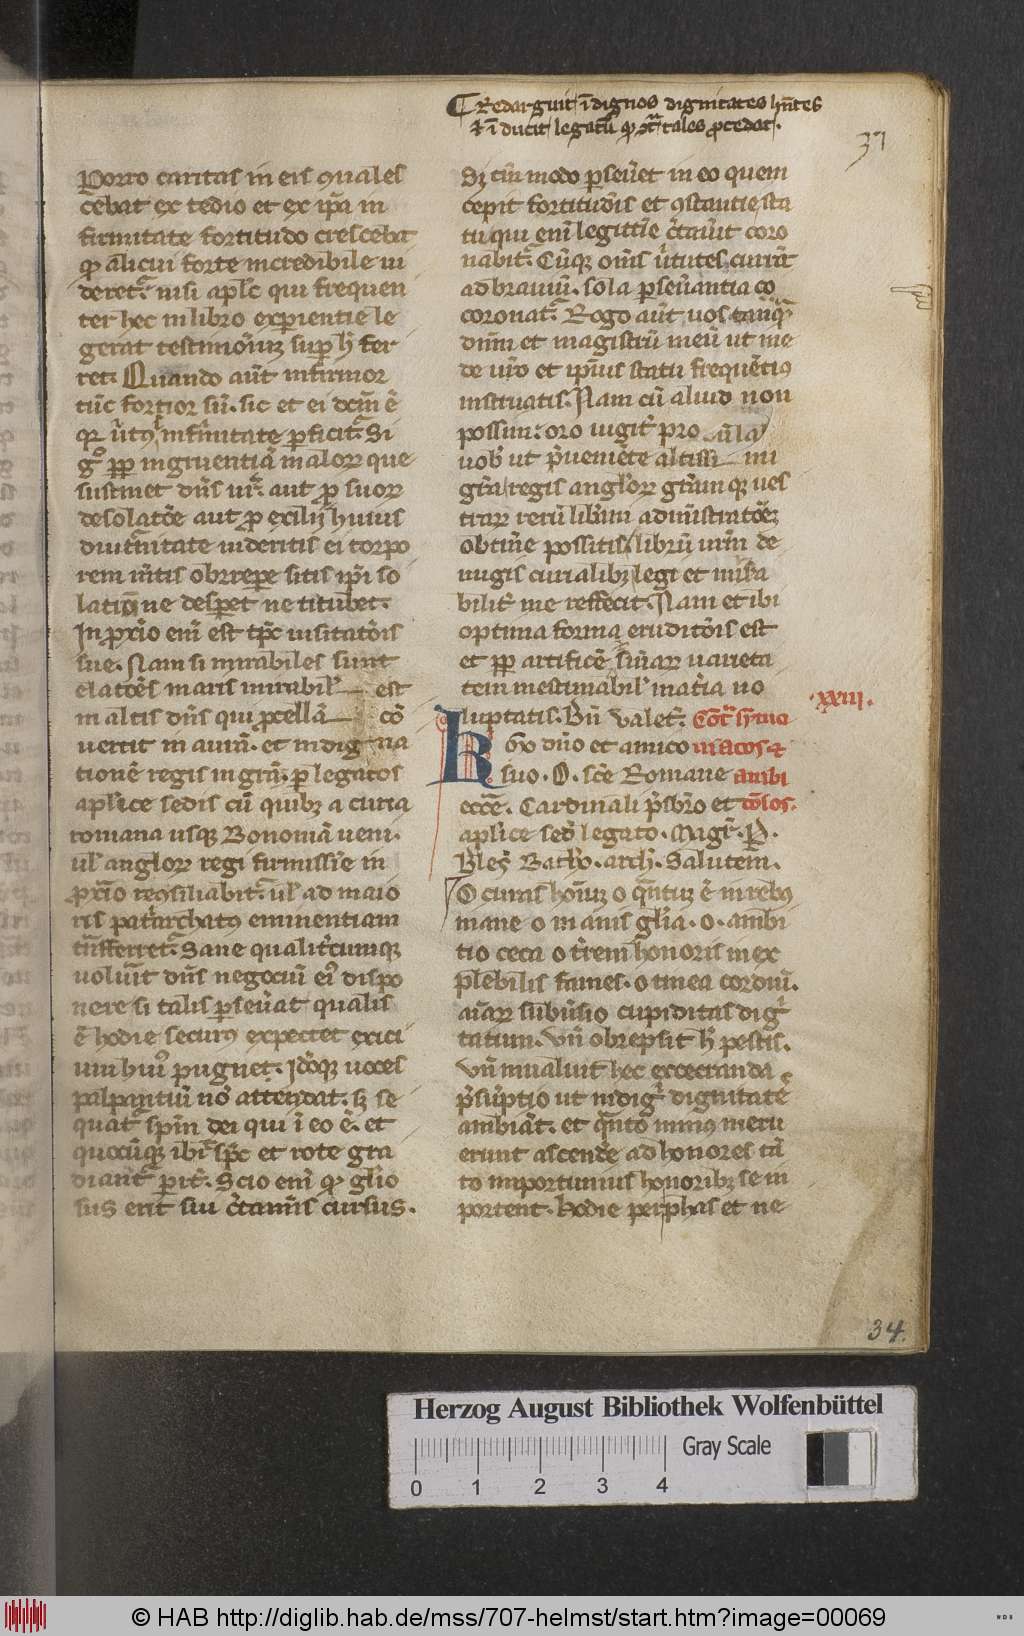 ¶ Redarguit īdignos dignitates hn̄tes
⁊ īducit legatū ꝙ ɔͭ tales procedat.
37
Porro caritas in eis quales
cēbat ex tedio et ex ip̄a in
firmitate fortitudo crescebat
ꝙ alicui forte incredibile ui
deret᷑. nisi apl̄c qui frequen
ter hec in libro experientie le
gerat testimoniuꝫ suꝑ h̄ fer
ret. Quando aūt infirmor
tūc fortior sū. sic et ei dcm̄ ē
qꝛ ū̓tꝰ infirmitate ꝑficit᷑. Si
gͦ ꝓpꝑ ingruentiā maloꝝ que
sustinet dn̄s ur̄. aut ꝓ suoꝝ
desolatōe aut ꝓ exilij huius
diut̓nitate uideritis ei torpo
rem m̄tis obrrepere sitis ip̄i so
latium ne desperet ne titubet.
In ꝓxīo enī est tp̄c uisitatōis
sue. Nam si mirabiles sunt
elatōes maris mirabil̓ est
in altis dn̄s qui ꝓcellā cō
uertit in aurā. et indigna
tionē regis in grām. ꝑ legatos
apl̓ice sedis cū quibꝫ a curia
romana usqꝫ Bononiā ueni.
ul̓ angloꝝ regi firmissīe in
ꝓxīo recōsiliabit᷑. ul̓ ad maio
ris pat̓archatꝰ eminentiam
tn̄sferret᷑. Sane qualit̓cumqꝫ
uolūit dn̄s negociū eiꝰ dispo
nere si talis ꝑseūat qualis
ē hodie securꝰ expectet exici
um huiꝰ pugne. Idoqꝫ uoces
palpantiū nō attendat. sꝫ se
quat᷑ spm̄ dei qui ī eo ē. et
quocūqꝫ ibit sp̄c et rote gra
diant᷑ ꝑit̓. Scio enī ꝙ gl̓io
sus erit sui c̓taminis cursus.
Sꝫ tm̄ modo ꝑseūet in eo quem
cepit fortitudīs et ɔstantie sta
tū qui enī legittīe c̓tau̓it coro
nabit᷑. Cūqꝫ om̄s ū̓tutes currāt
ad brauiū. sola ꝑseūantia co
coronat᷑. Rogo aūt uos tanqͣꝫ
dn̄m et magistrū meū ut me
de ur̄o et ip̄ius statu frequētiꝰ
instruatis. Nam cū aliud non
possum. oro iugit̓ pro
uob̓ ut p̄ueniēte altissimi
grā regis angloꝝ grām qꝫ ues
traꝝ rerū lib̓am adm̄istratōeꝫ
obtin̓e possitis. librū ur̄m de
nugis curialibꝫ legi et mira
bilit̓ me reffecit. Nam et ibi
optima forma eruditōis est
et ꝓpꝑ artificē sn̄iaꝝ uarieta
tem inestimabil̓ mat̓ia uo
luptatis. Bn̄ ualet̓. Cōt̓ symo
niacos ⁊
ambi
tōsos.
.xxiii.
Rgo dn̄o et amico
suo. O. sc̄e Romane
ecc̄e. Cardinali p̄sb̓ro et
apl̓ice sed̓ legato. Magr̄. P.
Bleś Bathō. arch̓. Salutem.
O curas hoīuꝫ o qn̄tuꝫ ē in rebꝰ
inane o inanis gl̓ia. o. ambi
tio ceca o t̓rem honoris inex
plebilis fames. o tinea cordiū.
aīaꝝ subū̓sio cupiditas dig
tatum. Vn̄ obrepsit h̓ pestis.
vn̄ inualuit hec execranda
p̄sūptio ut indig̓ dignitatē
ambiāt. et qn̄to minꝰ meru
erunt ascendē ad honores tā
to inportunius honoribꝫ se in
portent. Hodie per phas et ne
34.
Herzog August Bibliothek Wolfenbüttel
Gray Scale
0 1 2 3 4
© HAB http://diglib.hab.de/mss/707-helmst/start.htm?image=00069